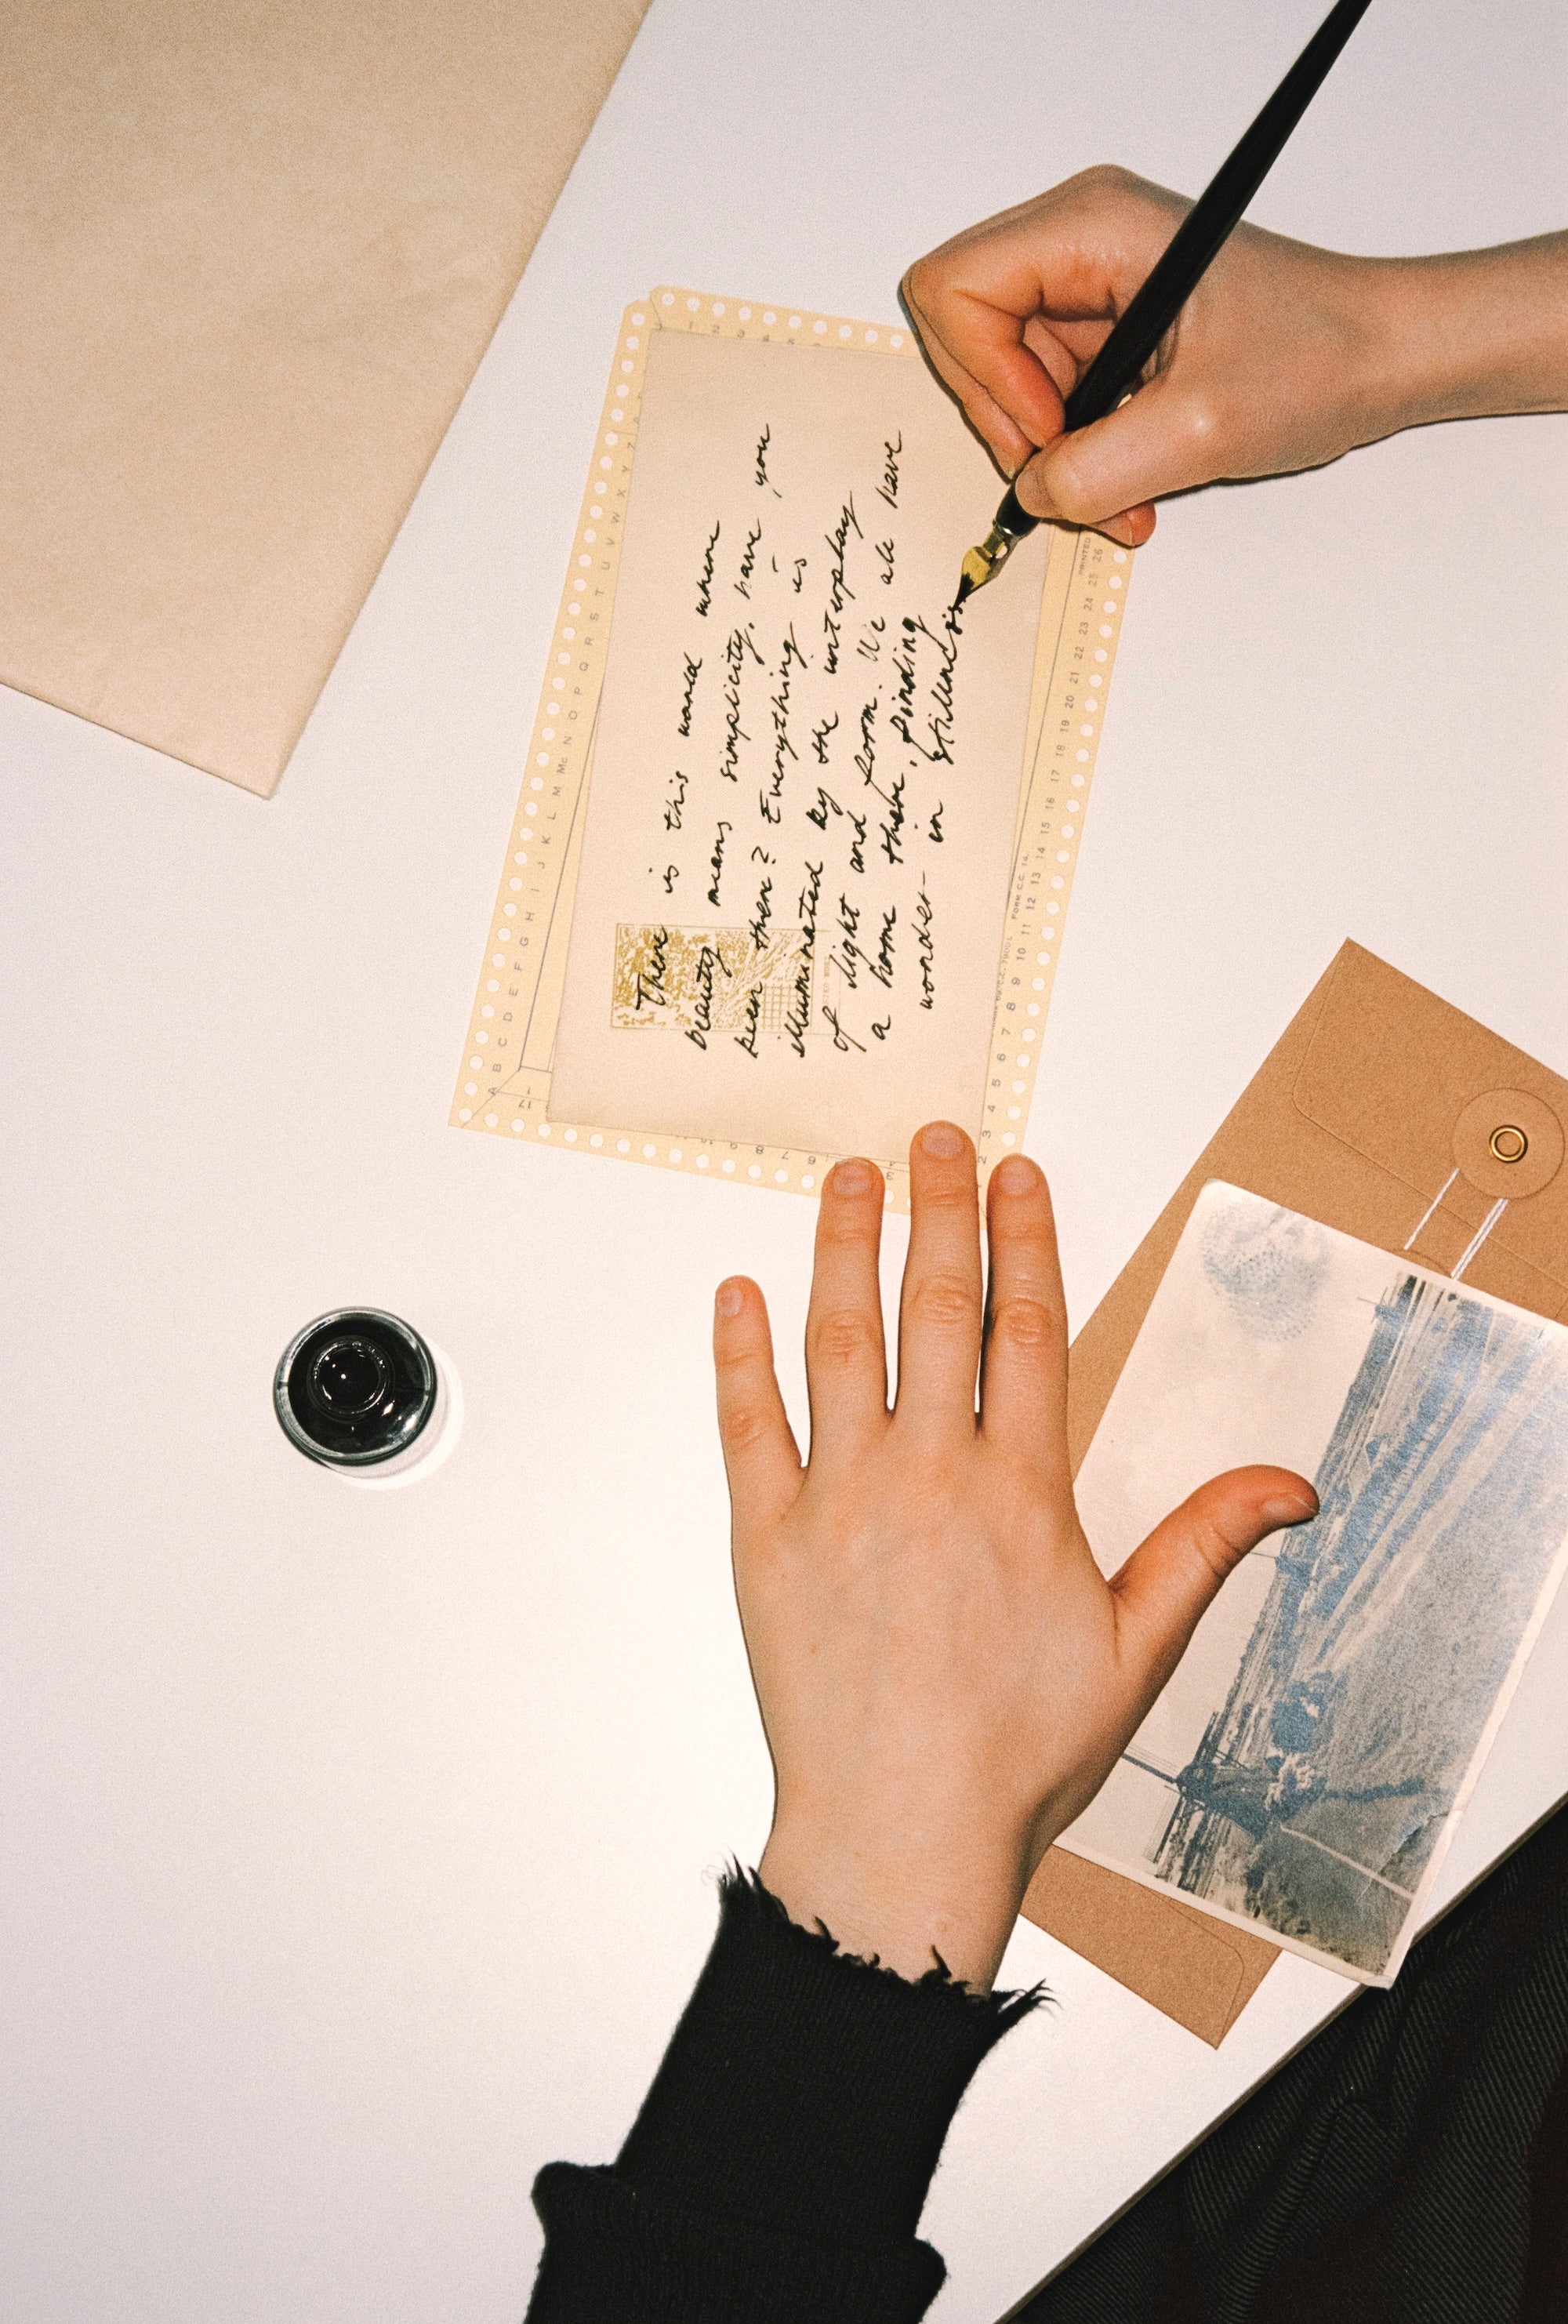 There is this world where
beauty means simplicity, have you
been there? Everything is
illuminated by the interplay
of light and form. We all have
a home there, finding
wonder in stillness
A B C D E F G H I J K L M Mc N O P Q R S T U V W X Y Z
1 2 3 4 5
2 3 4 5 6 7 8 9 10 11 12 13 14 15 16 17 18 19 20 21 22 23 24 25 26
FORM C.C. 14
PRINTED
17